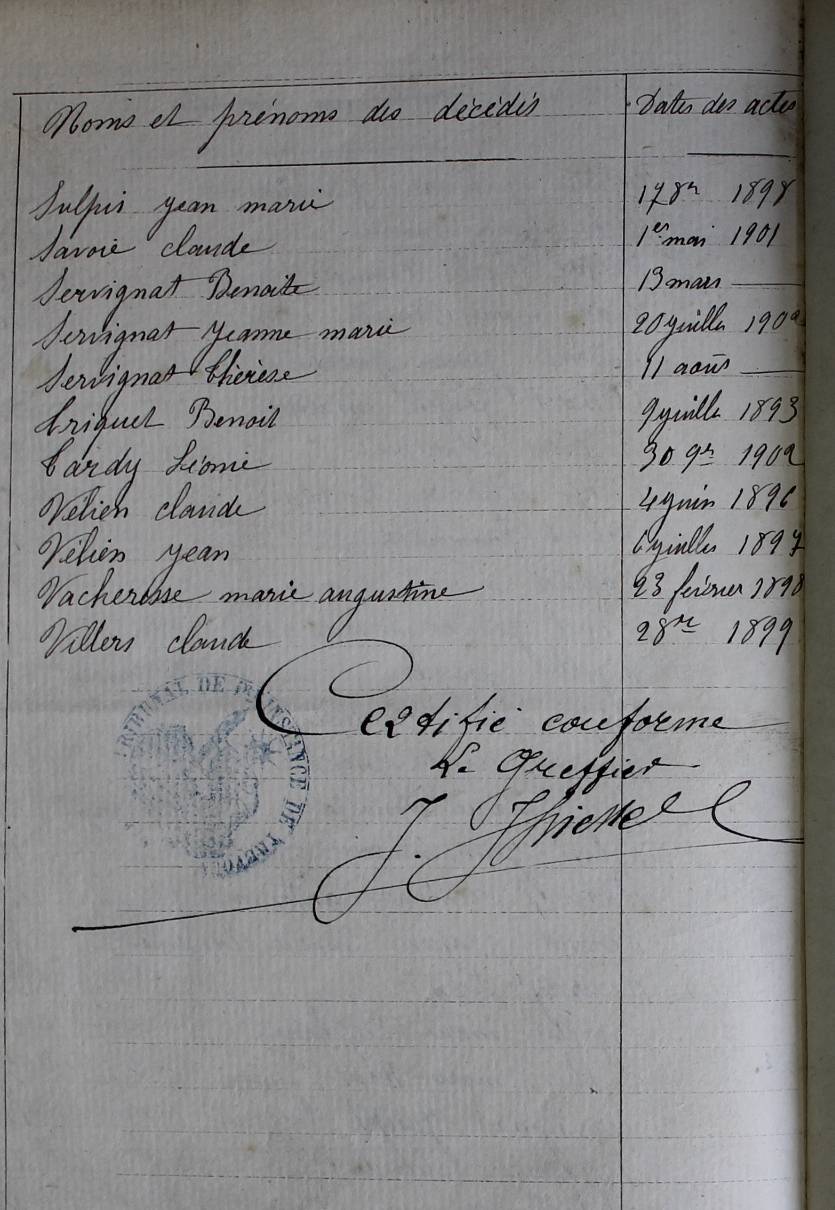 Noms et prénoms des décédés Dates des actes
Sulpis jean marie 17 8re 1898
Savoie claude 1er mai 1901
Servignat Benoite 13 mars —
Servignat jeanne marie 20 juille 1902
Servignat Thérèse 11 août —
Triquet Benoit 9 juille 1893
Tardy Léonie 30 9re 1902
Vélien claude 4 juin 1896
Vélien jean 6 juillet 1897
Vacheresse marie augustine 23 février 1898
Villers claude 1899
Certifié conforme
Le Greffier
J.
TRIBUNAL DE 1ère INSTANCE DE TREVOUX